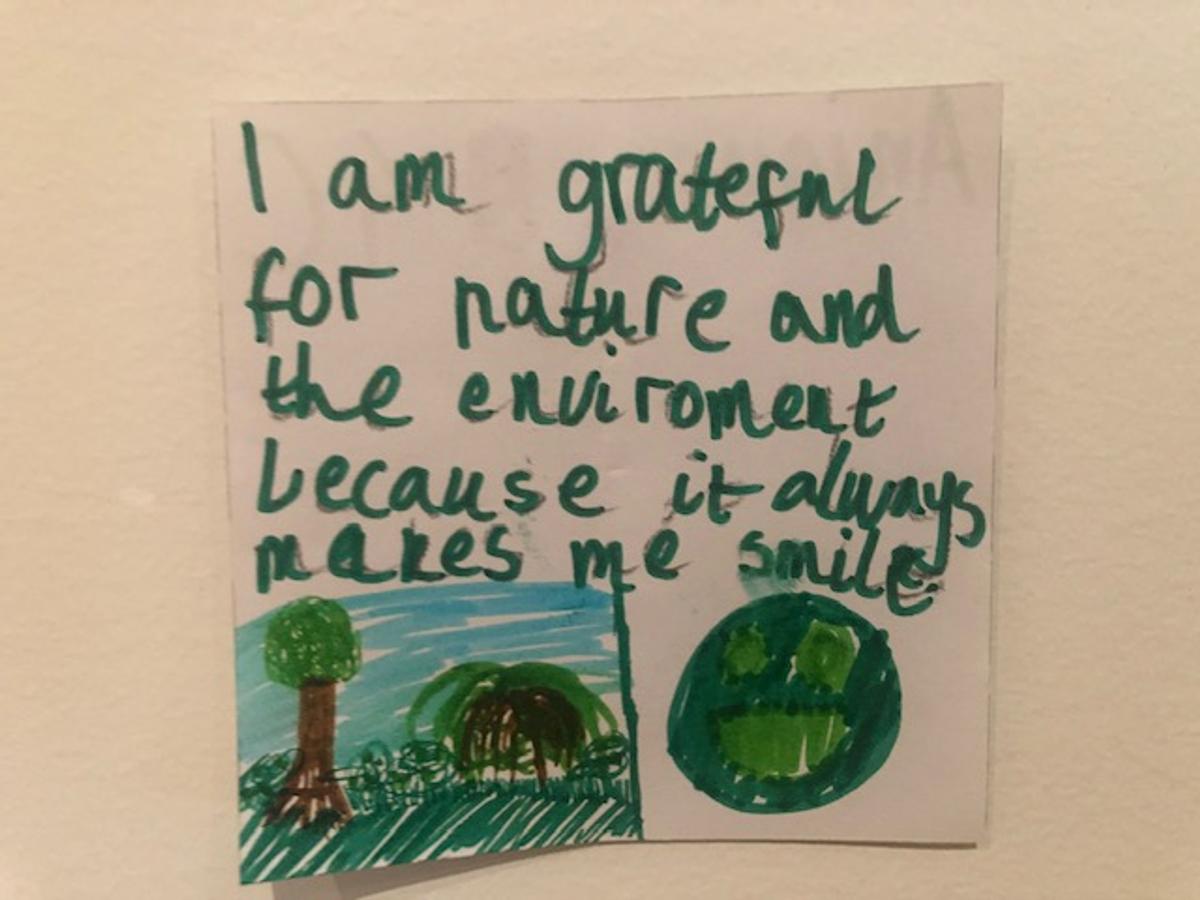 I am grateful
for nature and
the enviroment
because it always
makes me smile.